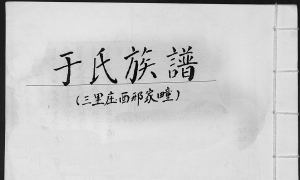 于氏族譜
(三里庄西祁家疃)